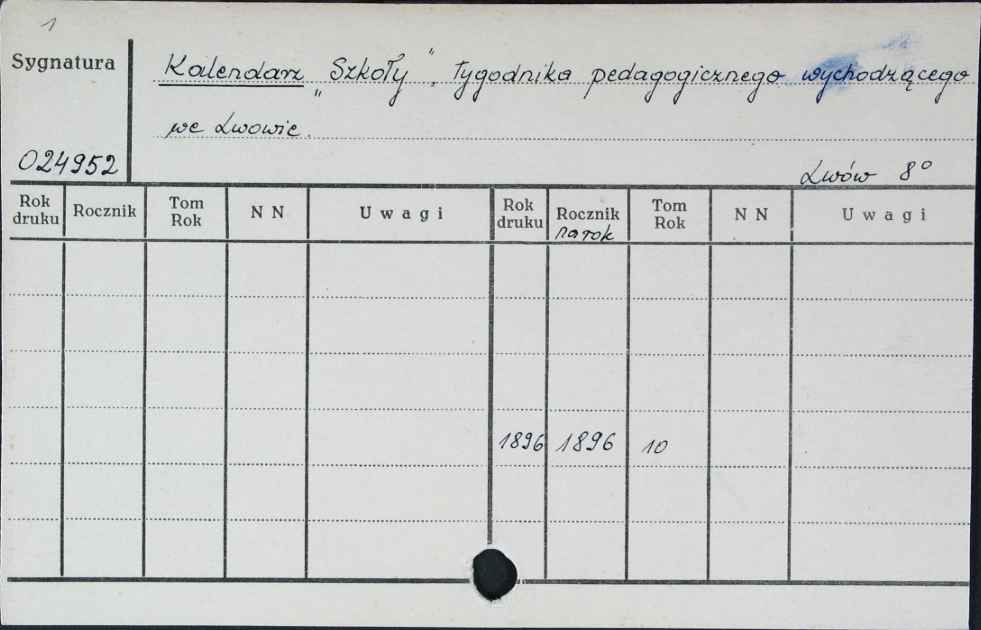 1
Sygnatura
Kalendarz „Szkoły", tygodnika pedagogicznego wychodzącego
we Lwowie.
024952
Lwów 8°
Rok druku Rocznik Tom Rok N N Uwagi Rok druku Rocznik na rok Tom Rok N N Uwagi
1896 1896 10